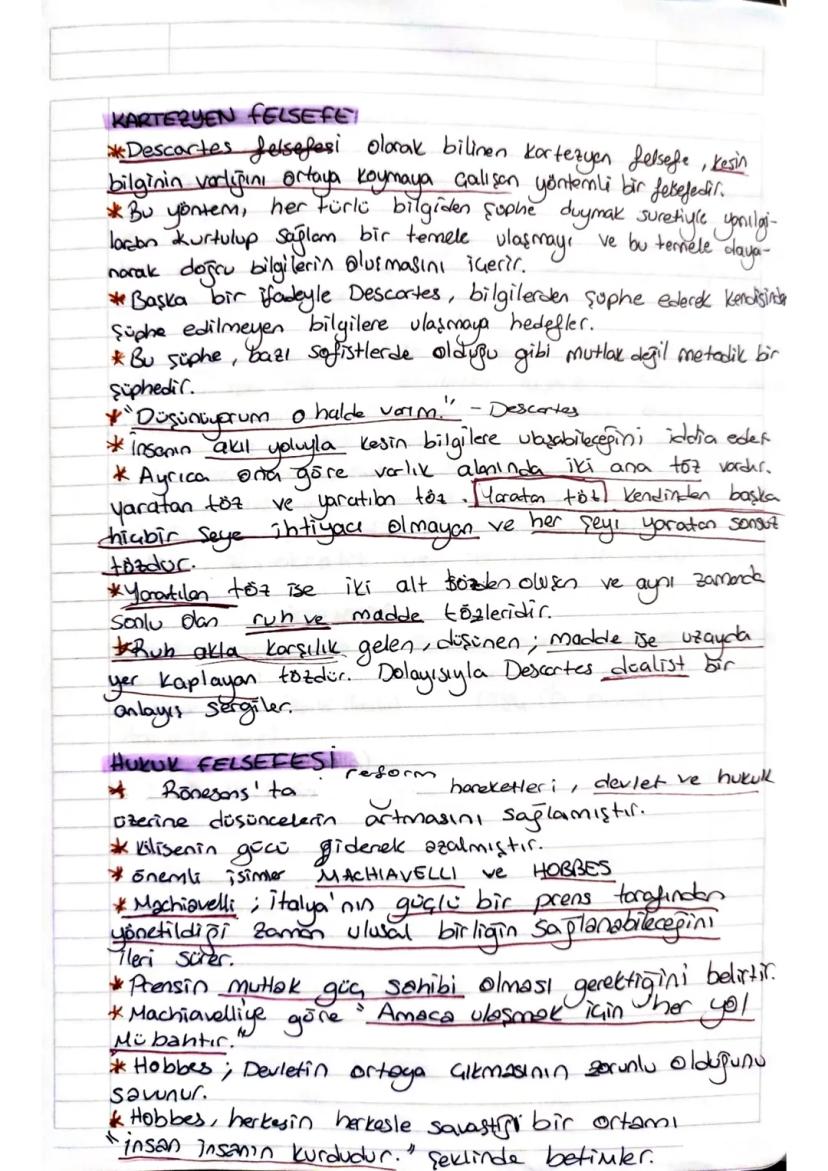 KARTEZYEN FELSEFE
*Descartes felsefesi olarak bilinen kartezyen felsefe, kesin
bilginin varlığını ortaya koymaya çalışan yöntemli bir felsefedir.
*Bu yöntem, her türlü bilgiden şüphe duymak suretiyle yanılgı-
lardan kurtulup sağlam bir temele ulaşmayı ve bu temele daya-
narak doğru bilgilerin oluşmasını içerir.
*Başka bir ifadeyle Descartes, bilgilerden şüphe ederek kendisinden
şüphe edilmeyen bilgilere ulaşmaya hedefler.
*Bu şüphe, bazı sofistlerde olduğu gibi mutlak değil metodik bir
şüphedir.
*"Düşünüyorum o halde varım." - Descartes
*İnsanın akıl yoluyla kesin bilgilere ulaşabileceğini iddia eder
* Ayrıca ona göre varlık alanında iki ana töz vardır.
yaratan töz ve yaratılan töz. Yaratan töz kendinden başka
hiçbir şeye ihtiyacı olmayan ve her şeyi yaratan sonsuz
tözdür.
*Yaratılan töz ise iki alt tözden oluşan ve aynı zamanda
sonlu olan ruh ve madde tözleridir.
*Ruh akla karşılık gelen, düşünen; madde ise uzayda
yer kaplayan tözdür. Dolayısıyla Descartes dualist bir
anlayış sergiler.
HUKUK FELSEFESİ
* Rönesans'ta reform hareketleri, devlet ve hukuk
üzerine düşüncelerin artmasını sağlamıştır.
* Kilisenin gücü giderek azalmıştır.
* önemli isimler MACHIAVELLI ve HOBBES
* Machiavelli; İtalya'nın güçlü bir prens tarafından
yönetildiği zaman ulusal birliğin sağlanabileceğini
ileri sürer.
* Prensin mutlak güç sahibi olması gerektiğini belirtir.
* Machiavelliye göre "Amaca ulaşmak için her yol
Mübahtır."
* Hobbes; Devletin ortaya çıkmasının zorunlu olduğunu
savunur.
* Hobbes, herkesin herkesle savaştığı bir ortamı
"insan insanın kurdudur." şeklinde betimler.